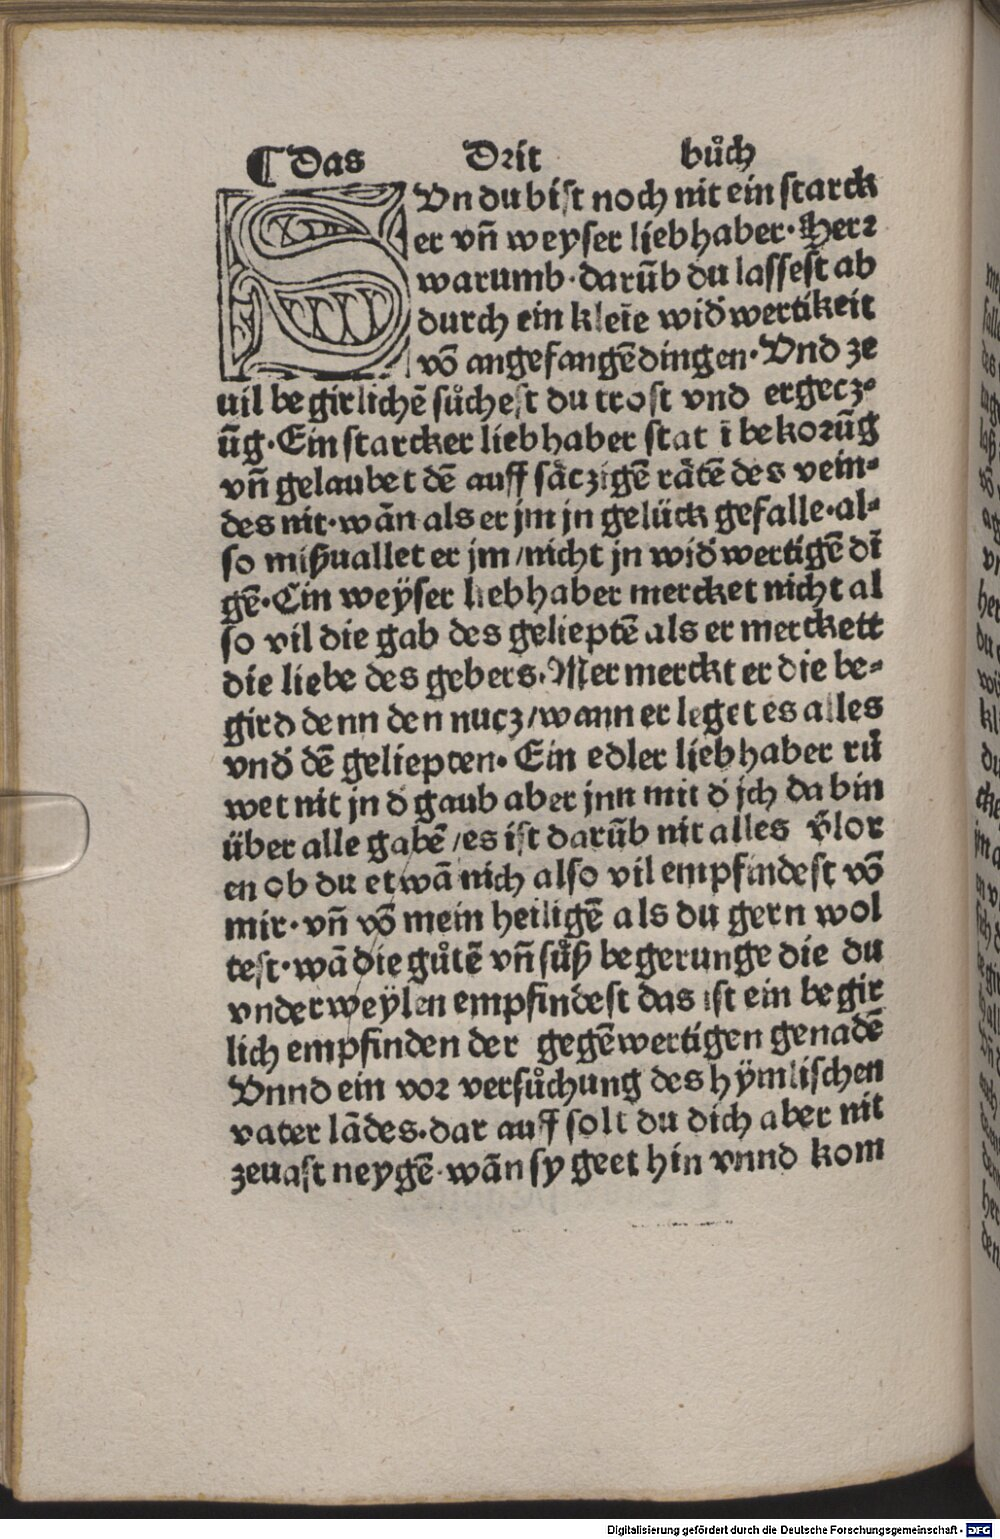 ¶ Das Drit bůch
SVn du bist noch nit ein starck
er vñ weyser liebhaber· Herꝛ
warumb· darūb du lassest ab
durch ein kleīe widͦwertikeit
vō angefangē dingen· Vnd ze
uil begirlichē sůchest du trost vnd ergecz⸗
ūg· Ein starcker liebhaber stat ī bekoꝛūg
vñ gelaubet dē auff säczigē rätē des vein⸗
des nit· wān als er jm jn gelück gefalle· al⸗
so mißuallet er jm /nicht jn widͦwertigē dī
gē· Ein weÿser liebhaber mercket nicht al
so vil die gab des geliептē als er merckett
die liebe des gebers. Mer merckt er die be⸗
gird denn den nucz /wann er leget es alles
vndͦ dē geliepten· Ein edler liebhaber rů
wet nit jn dͦ gaub aber jnn mit dͦ jch da bin
über alle gabē /es ist darūb nit alles vͦlor
en ob du etwā nich also vil empfindest vō
mir· vñ vō mein heiligē als du gern wol
test· wā die gůtē vñ süß begerunge die du
vnderweÿlen empfindest das ist ein begir
lich empfinden der gegēwertigen genadē
Vnnd ein voꝛ versůchung des hÿmlischen
vater lādes. dar auff solt du dich aber nit
zeuast neygē· wān sy geet hin vnnd kom
Digitalisierung gefördert durch die Deutsche Forschungsgemeinschaft - DFG